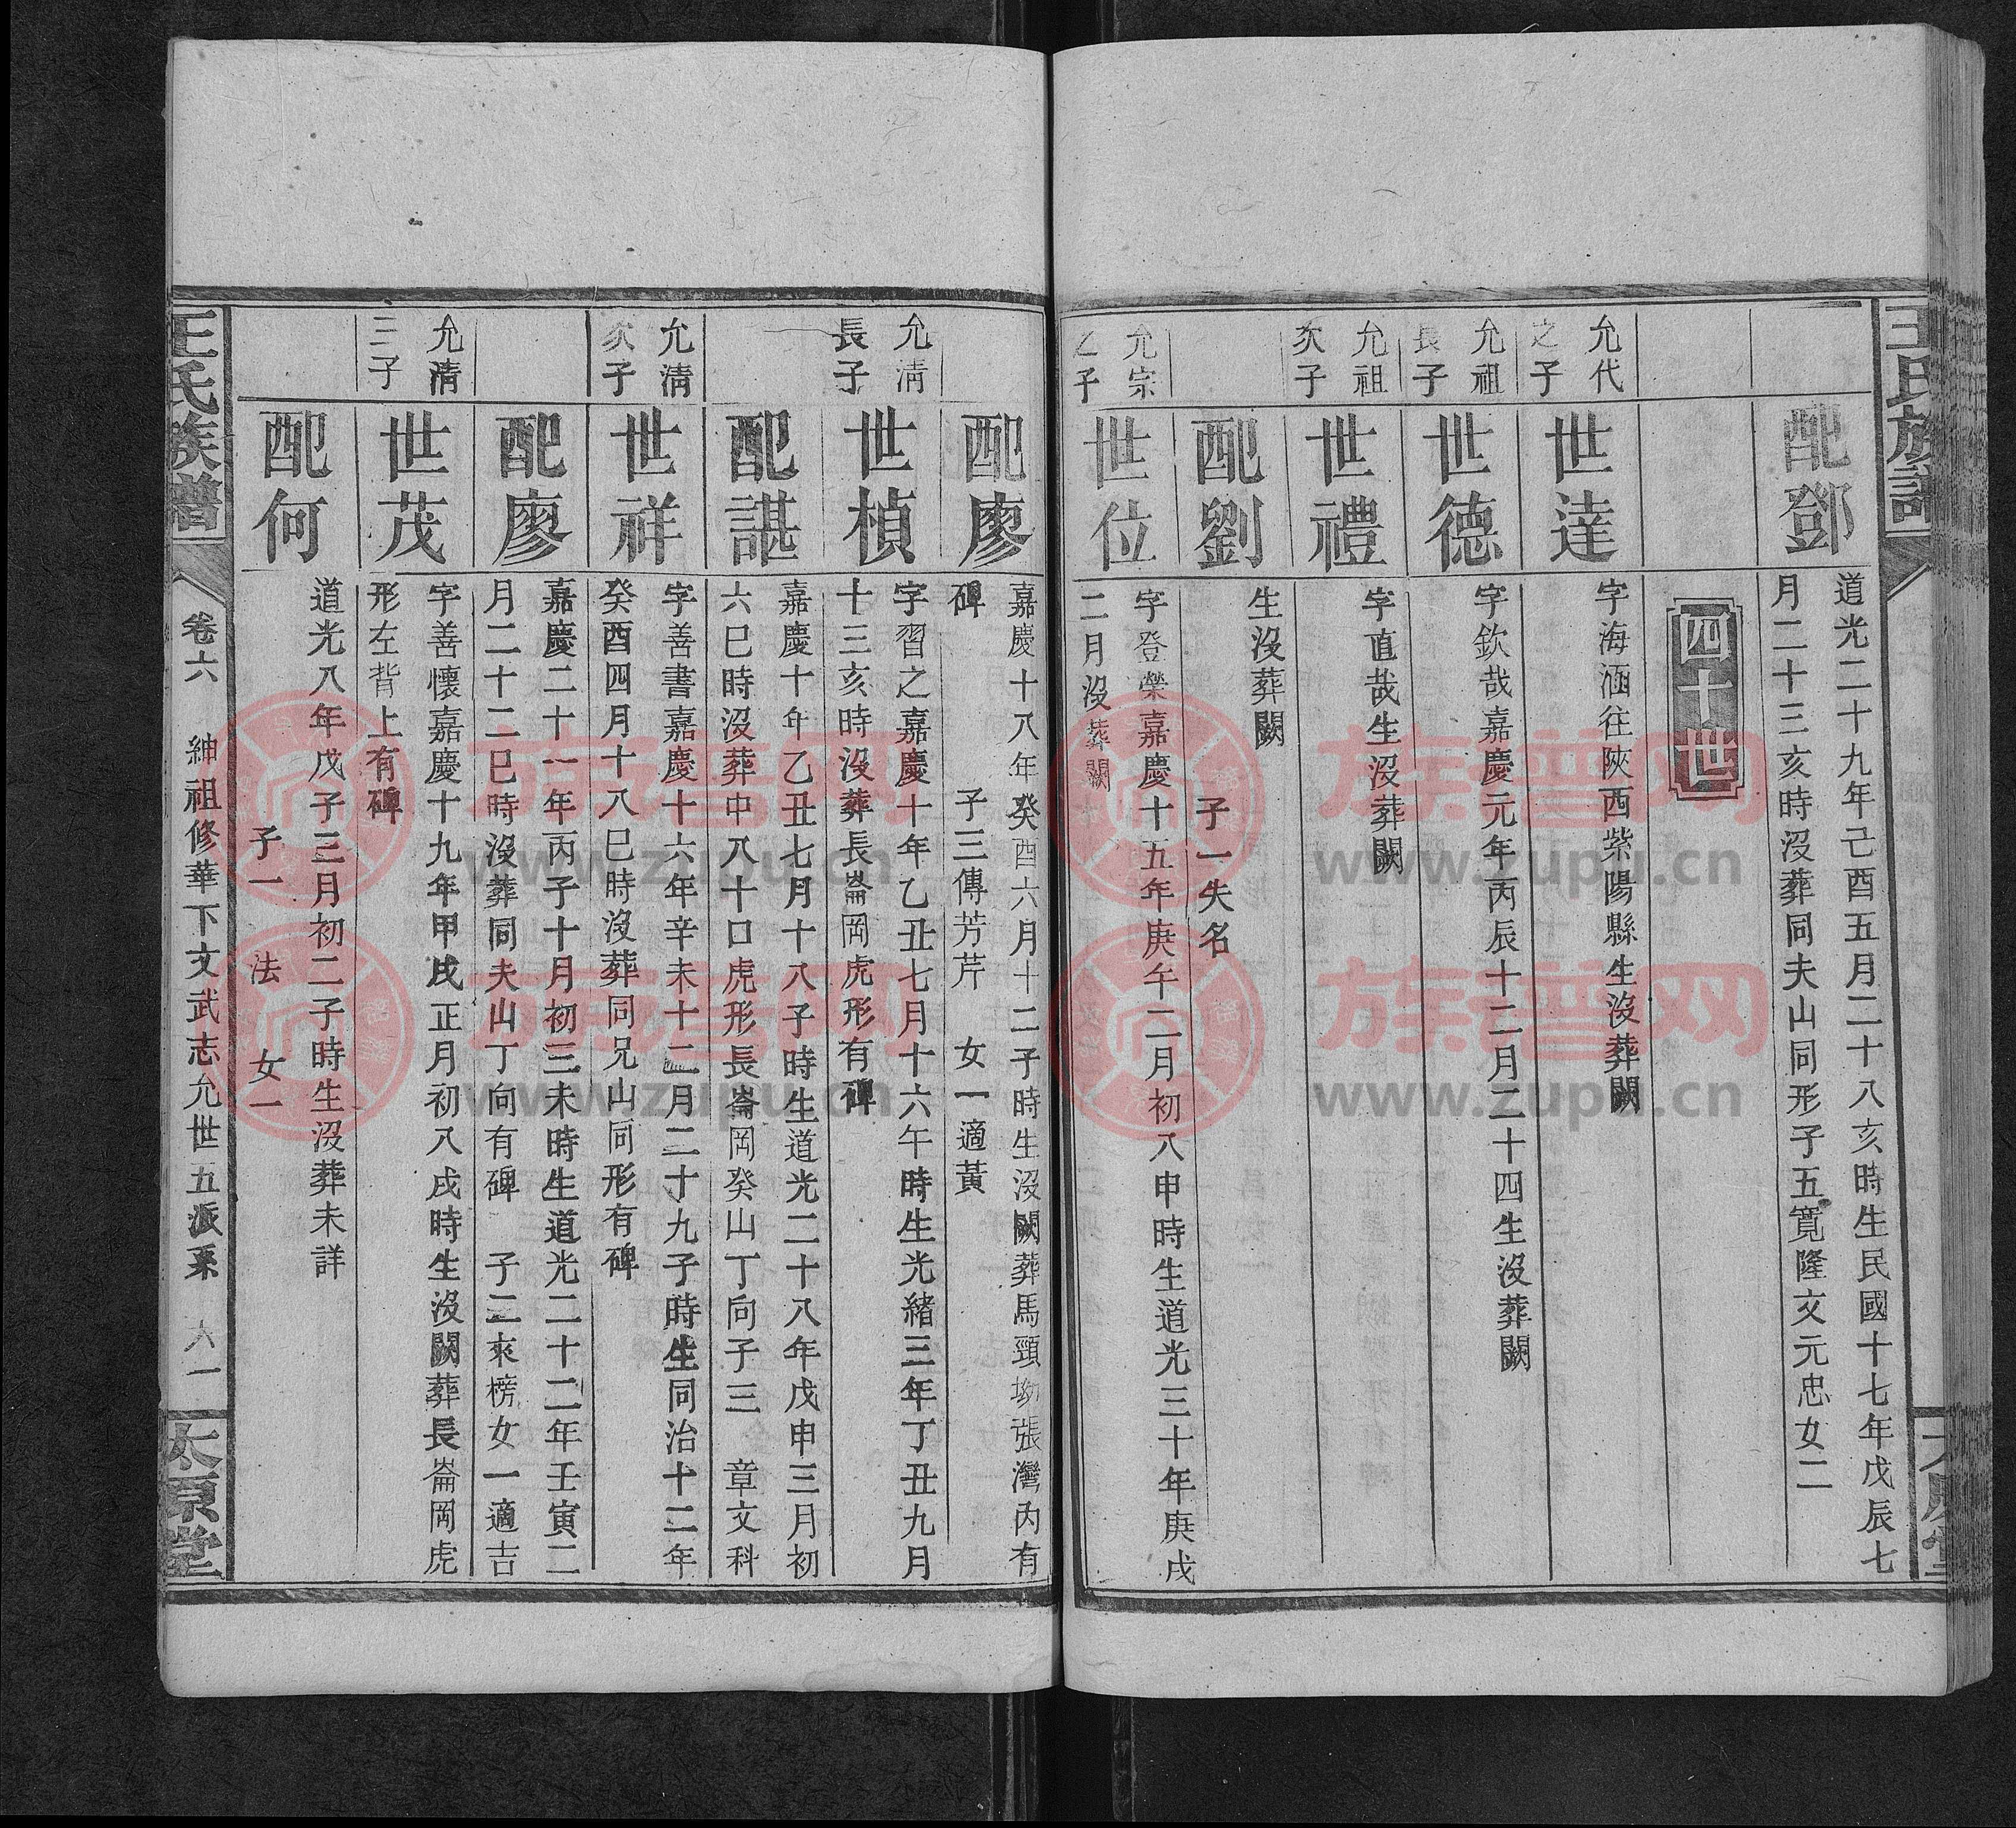 王氏族譜
配鄧
道光二十九年己酉五月二十八亥時生民國十七年戊辰七
月二十三亥時沒葬同夫山同形子五寬隆文元忠女二
四十世
允代
之子
世達
字海涵往陝西紫陽縣生沒葬闕
允祖
長子
世德
字欽哉嘉慶元年丙辰十二月二十四生沒葬闕
允祖
次子
世禮
字直哉生沒葬闕
配劉
生沒葬闕
子一失名
允宗
之子
世位
字登榮嘉慶十五年庚午二月初八申時生道光三十年庚戌
二月沒葬闕
配廖
嘉慶十八年癸酉六月十二子時生沒闕葬馬頸坳張灣內有
碑 子三傳芳芹 女一適黃
允清
長子
世楨
字習之嘉慶十年乙丑七月十六午時生光緒三年丁丑九月
十三亥時沒葬長崙岡虎形有碑
配諶
嘉慶十年乙丑七月十八子時生道光二十八年戊申三月初
六巳時沒葬中八十口虎形長崙岡癸山丁向子三 章文科
允清
次子
世祥
字善書嘉慶十六年辛未十二月二十九子時生同治十二年
癸酉四月十八巳時沒葬同兄山同形有碑
配廖
嘉慶二十一年丙子十月初三未時生道光二十二年壬寅二
月二十二巳時沒葬同夫山丁向有碑 子二來榜女一適吉
允清
三子
世茂
字善懷嘉慶十九年甲戌正月初八戌時生沒闕葬長崙岡虎
形左背上有碑
配何
道光八年戊子三月初二子時生沒葬未詳
子一 法 女一
王氏族譜
卷六 紳祖修華下文武志允世五派系 六一
太原堂
族谱网
www.zupu.cn
族谱网
www.zupu.cn
族谱网
www.zupu.cn
族谱网
www.zupu.cn